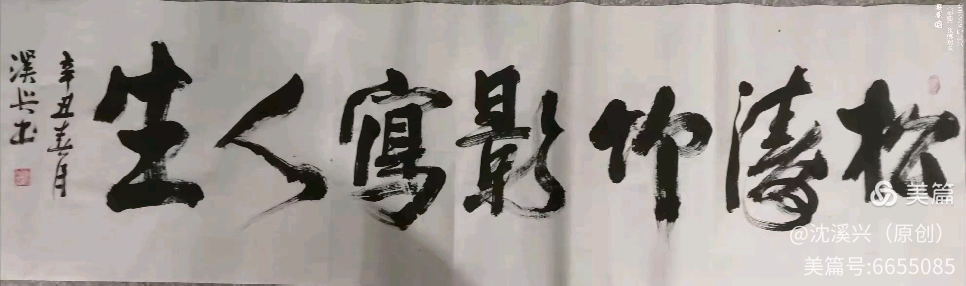 松濤竹影寫人生
辛丑春月
溪兴书
美篇
@沈溪兴（原创）
美篇号:6655085